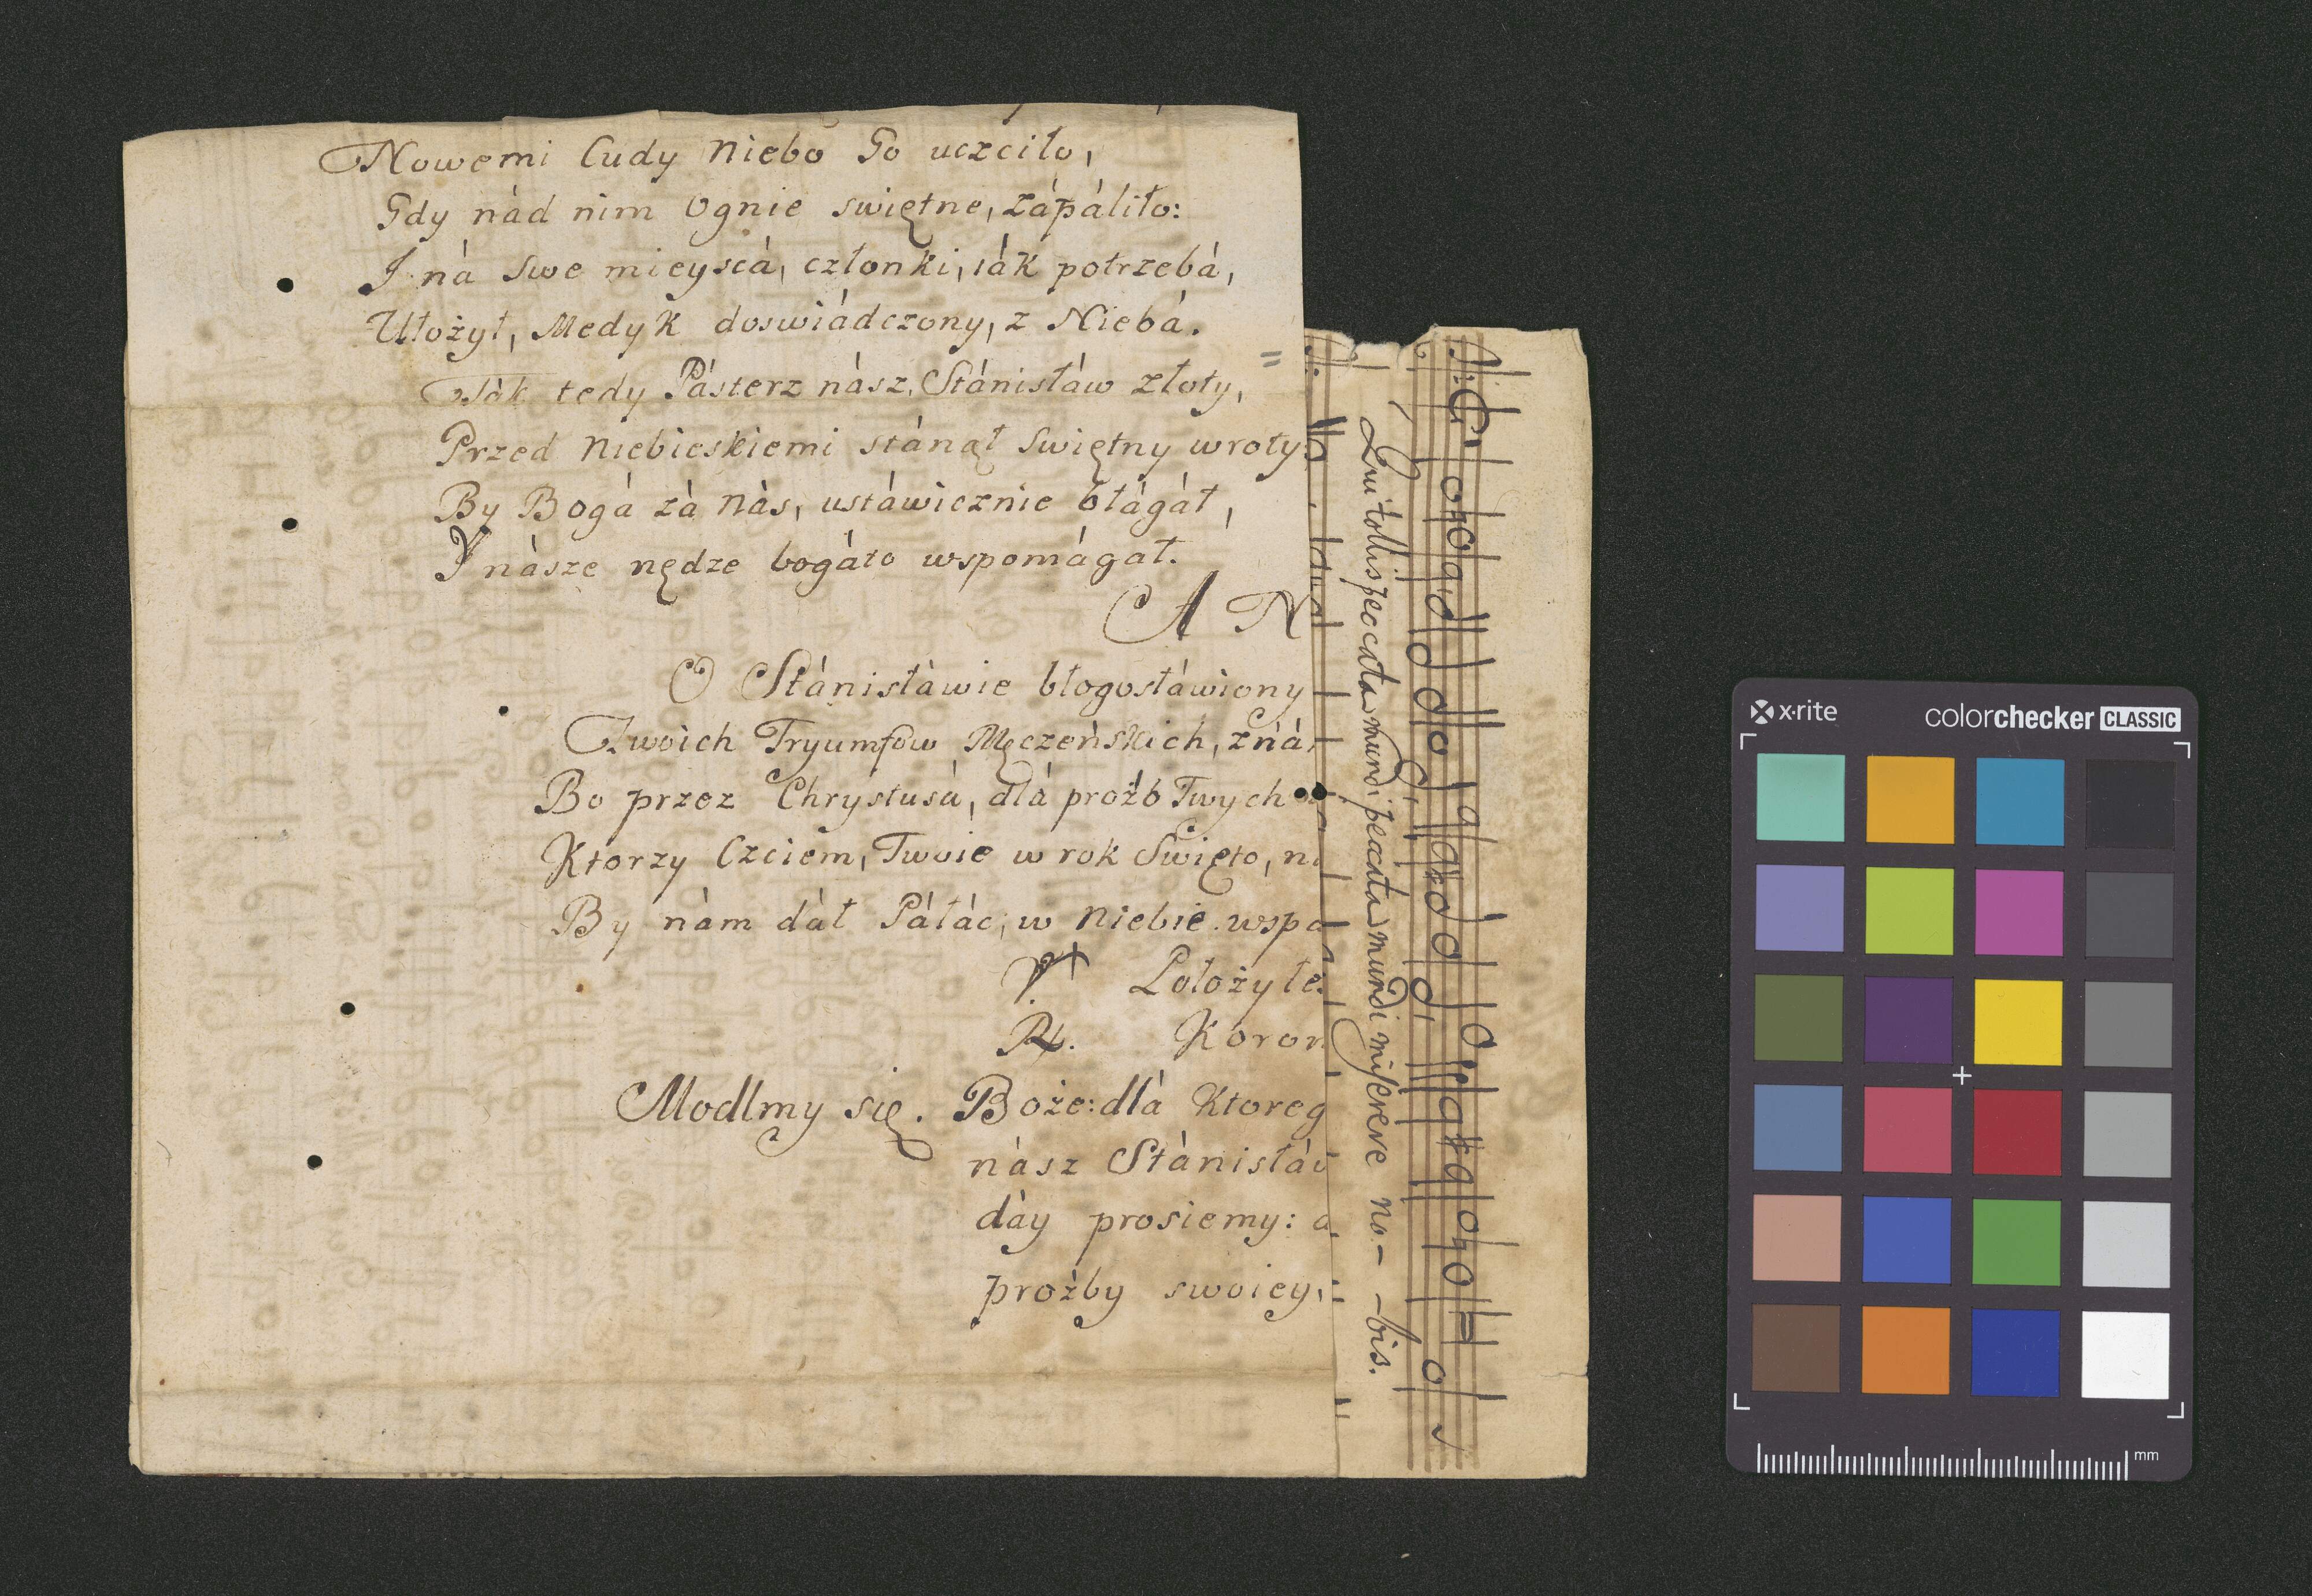 Nowemi Cudy Niebo Go uczciło,
Gdy nád nim Ognie swiętne, zápáliło:
I ná Swe mieyscá, członki, iák potrzebá,
Ułożył, Medyk doswiádczony, z Niebá.
Ták tedy Pásterz nász, Stánisłáw złoty, =
Przed Niebieskiemi stánął Swiętny wroty:
By Bogá zá Nás, ustáwicznie błágáł,
I násze nędze bogáto wspomágał.
A N
O Stánisłáwie błogosłáwiony
Twoich Tryumfow Męczeńskich, zná
Bo przez Chrystusá, dlá proźb Twych
Ktorzy Czciem, Twoie w rok Swięto, ni
By nám dáł Páłác, w Niebie wspa
V. Położyłe
R. Koron
Modlmy się. Boże: dlá Ktoreg
nász Stánisłáw
dáy prosiemy: a
proźby swoiey,
Qui tollis peccata mundi peccata mundi miserere no - - bis.
x·rite
colorchecker CLASSIC
mm